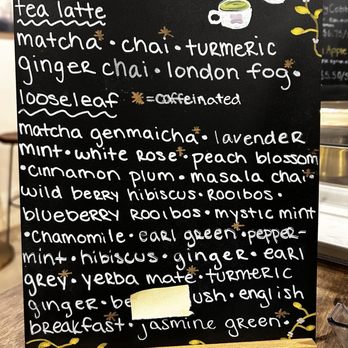 tea latte
matcha* • chai • turmeric
ginger chai • london fog*
looseleaf *=caffeinated
matcha genmaicha* • lavender
mint • white rose* • peach blossom
• cinnamon plum • masala chai*
wild berry hibiscus • rooibos •
blueberry rooibos • mystic mint
• chamomile • earl green* • pepper-
mint • hibiscus • ginger • earl
grey* • yerba mate* • turmeric
ginger • english
breakfast* • jasmine green*